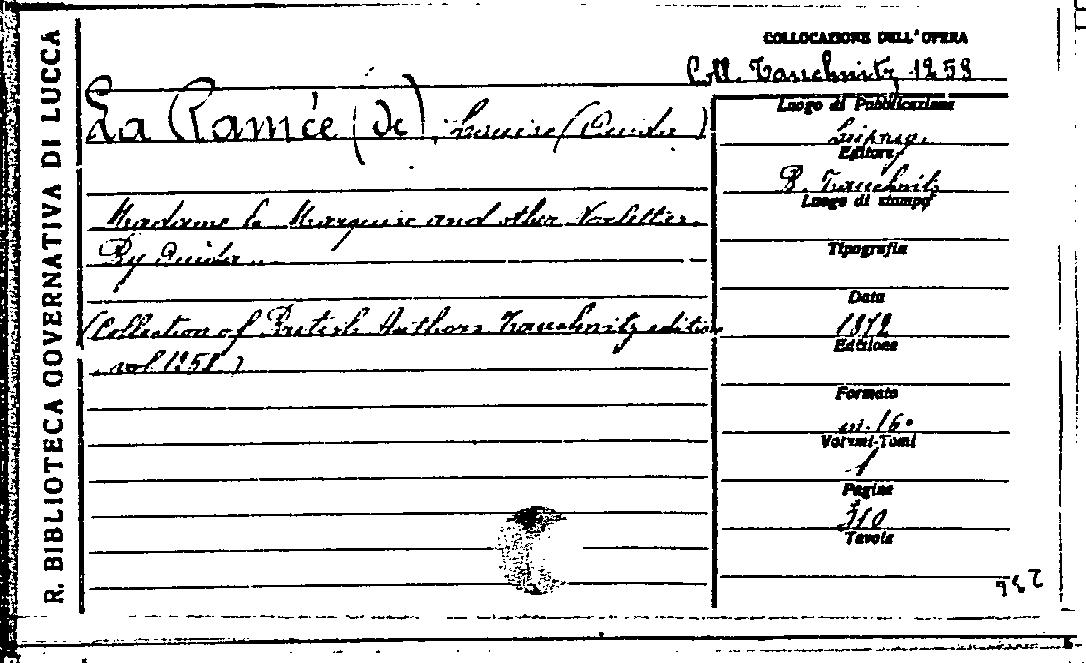 R. BIBLIOTECA GOVERNATIVA DI LUCCA
COLLOCAZIONE DELL'OPERA
Coll. Tauchnitz 1259
La Ramée (de), Louise (Ouida)
Madame la Marquise and other Novelettes.
By Ouida
(Collection of British Authors Tauchnitz edition
vol 1259)
Luogo di Pubblicazione
Leipzig.
Editore
B. Tauchnitz
Luogo di stampa
Tipografia
Data
1872
Edizione
Formato
in. 16°
Volumi-Tomi
1
Pagine
310
Tavole